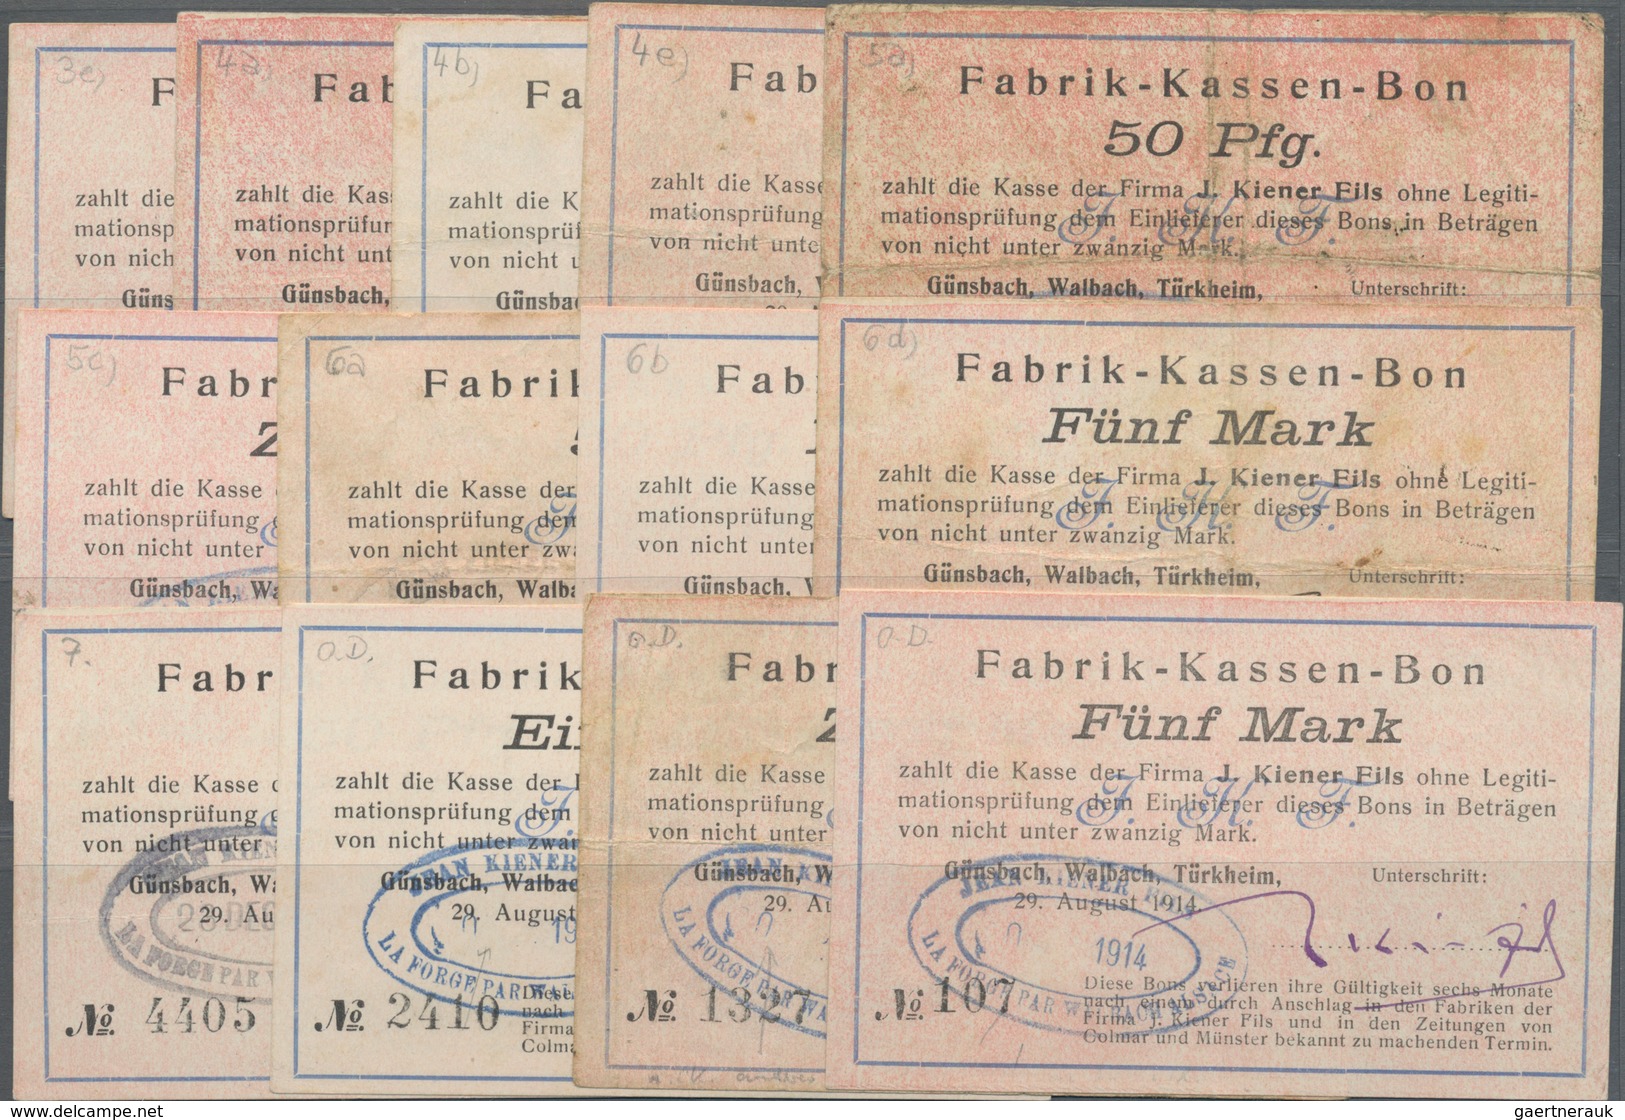 3e)
F
zahlt die
mationsp
von nich
Güns
4a)
Fab
zahlt die Kas
mationsprüfur
von nicht unt
Günsbach,
4b)
Fa
zahlt die K
mationsprüf
von nicht u
Günsba
4e)
Fab
zahlt die Kasse
mationsprüfung
von nicht unte
Günsbach,
5a)
Fabrik-Kassen-Bon
50 Pfg.
zahlt die Kasse der Firma J. Kiener Fils ohne Legiti-
mationsprüfung dem Einlieferer dieses Bons in Beträgen
J. K. F.
von nicht unter zwanzig Mark.
Günsbach, Walbach, Türkheim, Unterschrift:
5c)
Fabr
Z
zahlt die Kasse
mationsprüfung
von nicht unter
Günsbach, Wa
6a
Fabrik
zahlt die Kasse der
mationsprüfung dem
von nicht unter zwa
Günsbach, Walba
6b
Fab
zahlt die Kasse
mationsprüfung
von nicht unter
Günsbach,
6d)
Fabrik-Kassen-Bon
Fünf Mark
zahlt die Kasse der Firma J. Kiener Fils ohne Legiti-
mationsprüfung dem Einlieferer dieses Bons in Beträgen
J. K. F.
von nicht unter zwanzig Mark.
Günsbach, Walbach, Türkheim, Unterschrift:
7.
Fabr
zahlt die Kasse
mationsprüfung
von nicht unter
JEAN KIEN
Günsbach, Wa
29. Au
28 DEC
LA FORGE PAR W
No. 4405
O.D.
Fabrik
Ein
zahlt die Kasse der
mationsprüfung dem
J.
von nicht unter zwan
JEAN KIENER
Günsbach, Walbac
29. August
19
LA FORGE PAR WAL
No. 2410
Diese
nach
Firma
Colma
O.D.
Fabr
Z
zahlt die Kasse
mationsprüfung
von nicht unter
JEAN K
Günsbach, W
29. Au
LA FORGE PAR WA
No. 1327
O.D.
Fabrik-Kassen-Bon
Fünf Mark
zahlt die Kasse der Firma J. Kiener Fils ohne Legiti-
mationsprüfung dem Einlieferer dieses Bons in Beträgen
J. K. F.
von nicht unter zwanzig Mark.
JEAN KIENER FILS
Günsbach, Walbach, Türkheim, Unterschrift:
29. August 1914.
1914
LA FORGE PAR WALBACH
No. 107
Diese Bons verlieren ihre Gültigkeit sechs Monate
nach einem durch Anschlag in den Fabriken der
Firma J. Kiener Fils und in den Zeitungen von
Colmar und Münster bekannt zu machenden Termin.
www.delcampe.net
gaertnerauk